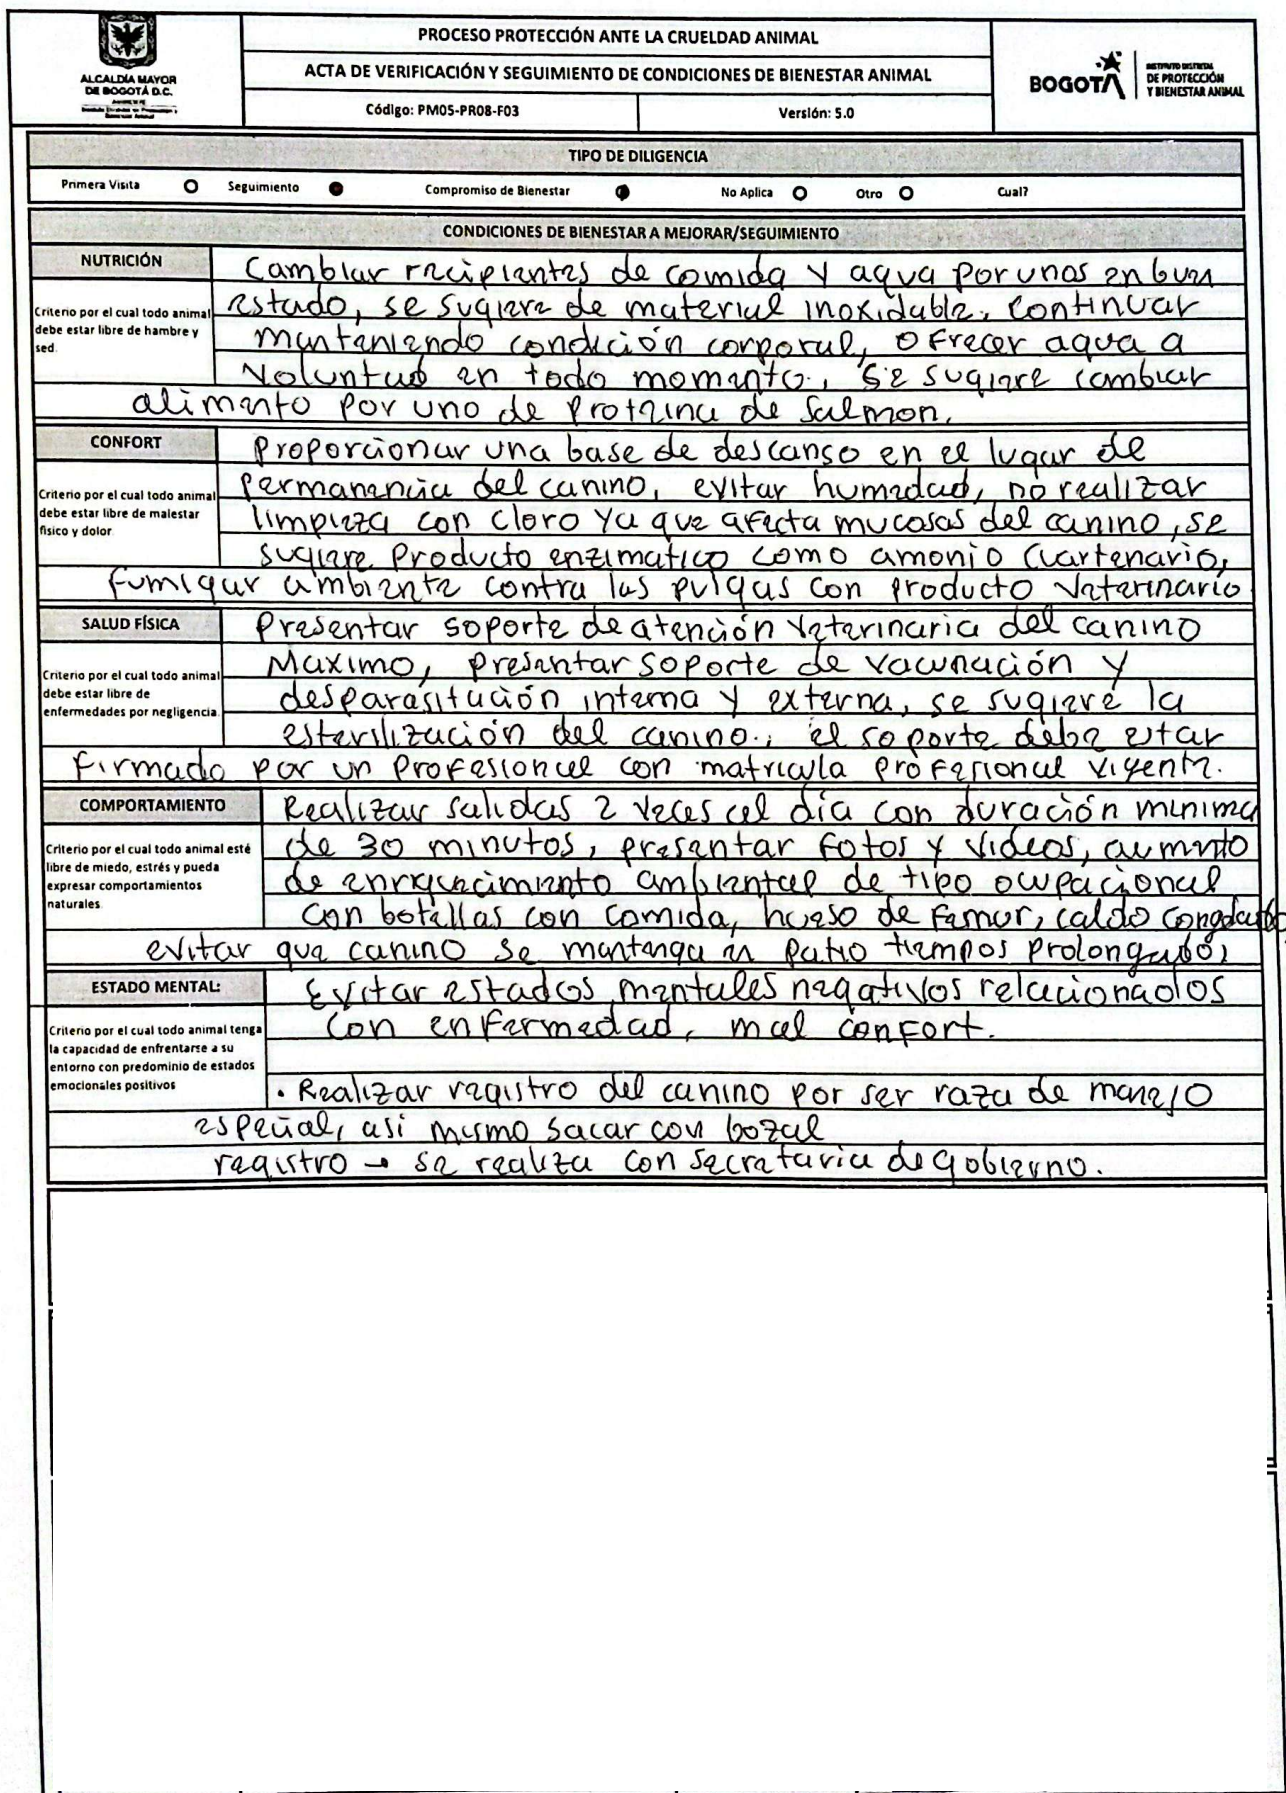 ALCALDÍA MAYOR
DE BOGOTÁ D.C.
PROCESO PROTECCIÓN ANTE LA CRUELDAD ANIMAL
ACTA DE VERIFICACIÓN Y SEGUIMIENTO DE CONDICIONES DE BIENESTAR ANIMAL
Código: PM05-PR08-F03 Versión: 5.0
BOGOTÁ
INSTITUTO DISTRITAL
DE PROTECCIÓN
Y BIENESTAR ANIMAL
TIPO DE DILIGENCIA
Primera Visita Seguimiento Compromiso de Bienestar No Aplica Otro Cual?
CONDICIONES DE BIENESTAR A MEJORAR/SEGUIMIENTO
NUTRICIÓN
Criterio por el cual todo animal
debe estar libre de hambre y
sed.
Cambiar recipientes de comida y agua por unos en buen
estado, se sugiere de material inoxidable. Continuar
manteniendo condición corporal, ofrecer agua a
voluntad en todo momento, se sugiere cambiar
alimento por uno de proteina de salmon.
CONFORT
Criterio por el cual todo animal
debe estar libre de malestar
físico y dolor
Proporcionar una base de descanso en el lugar de
permanencia del canino, evitar humedad, no realizar
limpieza con cloro ya que afecta mucosas del canino, se
sugiere producto enzimatico como amonio cuartenario,
fumigar ambiente contra las pulgas con producto veterinario
SALUD FÍSICA
Criterio por el cual todo animal
debe estar libre de
enfermedades por negligencia.
Presentar soporte de atención veterinaria del canino
Maximo, presentar soporte de vacunación y
desparasitación interna y externa, se sugiere la
esterilización del canino, el soporte debe estar
firmado por un profesional con matricula profesional vigente.
COMPORTAMIENTO
Criterio por el cual todo animal esté
libre de miedo, estrés y pueda
expresar comportamientos
naturales.
Realizar salidas 2 veces al día con duración minima
de 30 minutos, presentar fotos y videos, aumento
de enriquecimiento ambiental de tipo ocupacional
con botellas con comida, hueso de femur, caldo congelado,
evitar que canino se mantenga en patio tiempos prolongados,
ESTADO MENTAL:
Criterio por el cual todo animal tenga
la capacidad de enfrentarse a su
entorno con predominio de estados
emocionales positivos
Evitar estados mentales negativos relacionados
con enfermedad, mal confort.
· Realizar registro del canino por ser raza de manejo
especial, asi mismo sacar con bozal
registro → se realiza con secretaria de gobierno.